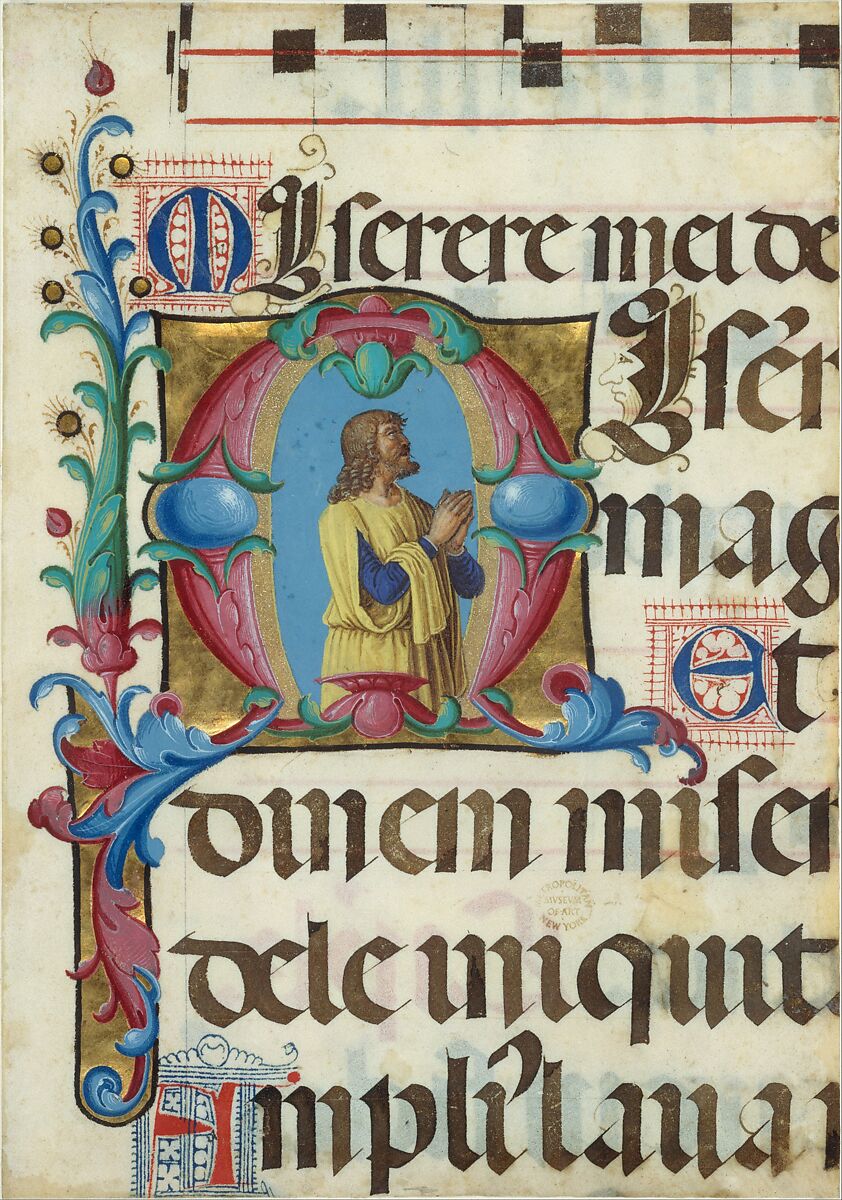 MIserere mei de
MIser
mag
Et
dinem miser
dele iniquit
Ampliꝰ laua
METROPOLITAN
MVSEVM
OF ART
NEW YORK